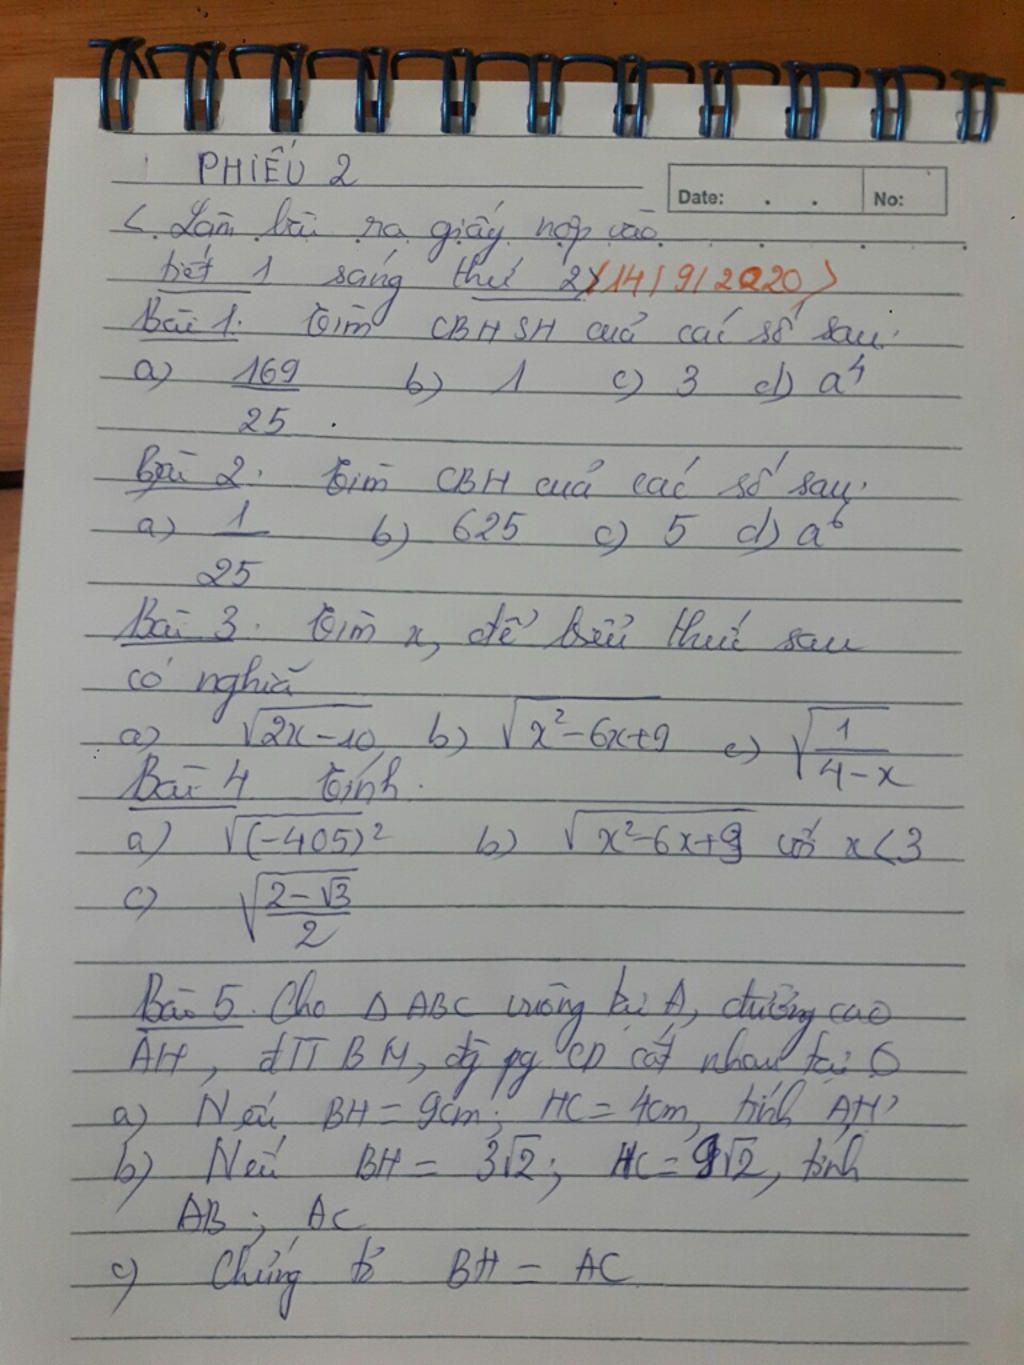 PHIẾU 2
Date: . . No:
< Làm bài ra giấy nộp vào
tiết 1 sáng thứ 2 (14/9/2020)
Bài 1: Tìm CBHSH của các số sau:
a) 169/25 b) 1 c) 3 d) a⁴
Bài 2: Tìm CBH của các số sau:
a) 1/25 b) 625 c) 5 d) a⁶
Bài 3. Tìm x, để biểu thức sau
có nghĩa
a) √(2x-10) b) √(x²-6x+9) c) √(1/(4-x))
Bài 4 Tính.
a) √(-405)² b) √(x²-6x+9) với x<3
c) √((2-√3)/2)
Bài 5. Cho Δ ABC vuông tại A, đường cao
AH, đTT BM, đg pg CD cắt nhau tại O
a) Nếu BH = 9cm; HC = 4cm, tính AH?
b) Nếu BH = 3√2; HC = 9√2, tính
AB; AC
c) Chứng tỏ BH = AC